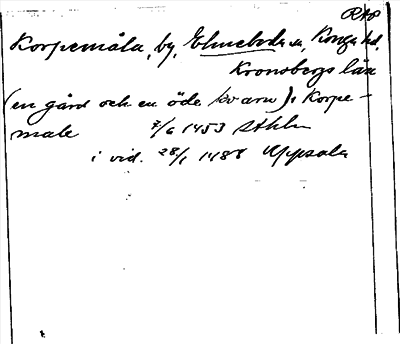 RAP
Korpemåla, by, Elmeboda sn, Konga hd,
Kronobergs län
(en gård och en öde kvarn) : Korpe-
male 7/6 1453 Sthlm
i vid. 28/1 1488 Uppsala